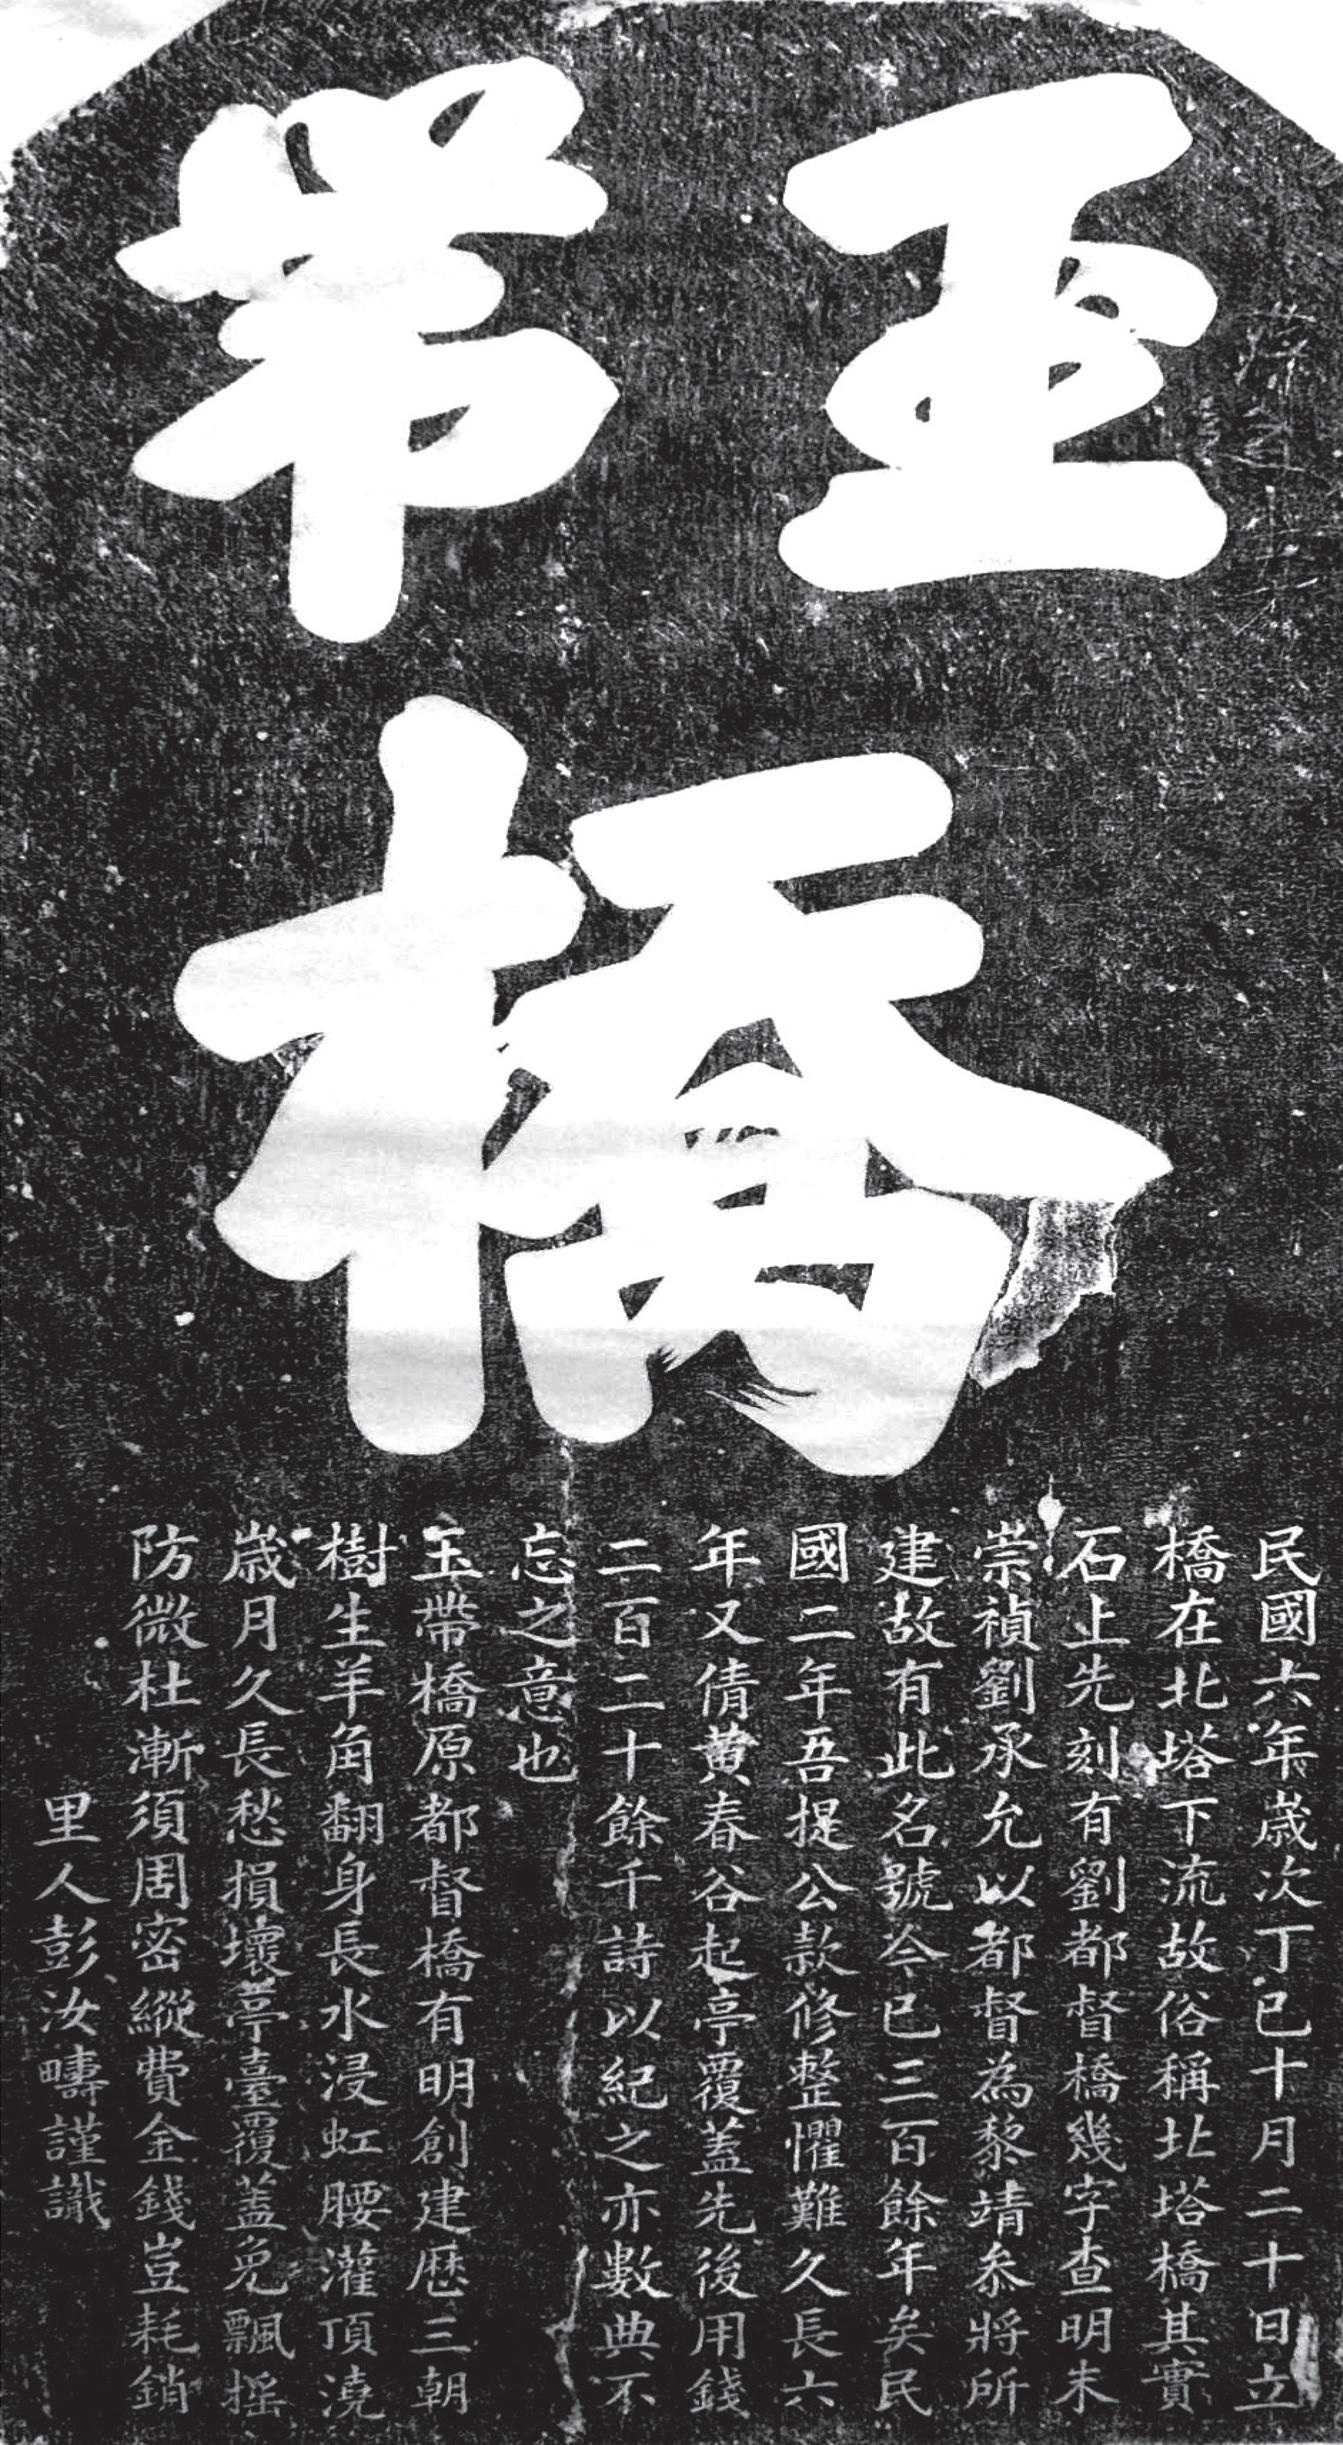 玉帶
橋
民國六年歲次丁巳十月二十日立
橋在北塔下流故俗稱北塔橋其實
石上先刻有劉都督橋幾字查明末
崇禎劉承允以都督為黎靖參將所
建故有此名號今已三百餘年矣民
國二年吾提公款修整懼難久長六
年又倩黄春谷起亭覆蓋先後用錢
二百二十餘千詩以紀之亦數典不
忘之意也
玉帶橋原都督橋有明創建歷三朝
樹生羊角翻身長水浸虹腰灌頂澆
歲月久長愁損壞葶臺覆蓋免飄摇
防微杜漸須周密縱費金錢豈耗銷
里人彭汝疇謹識